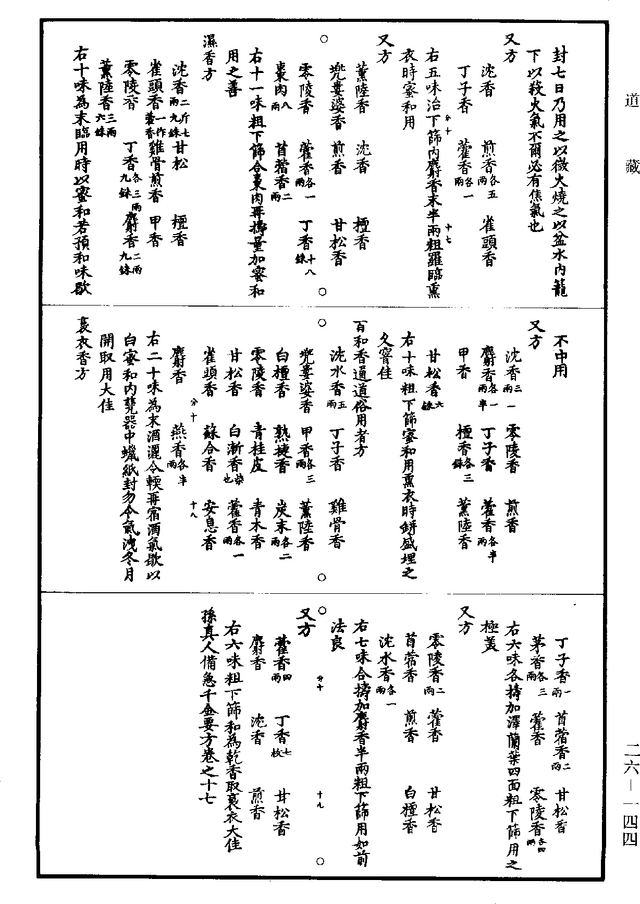 道藏
封七日乃用之以微火燒之以盆水內籠
下以殺火氣不爾必有焦氣也
又方
沈香 煎香各五兩 雀頭香
丁子香 藿香各一兩
右五味治下篩內麝香末半兩粗羅臨熏
衣時蜜和用
又方
薰陸香 沈香 檀香
兜婁婆香 煎香 甘松香
零陵香 藿香各一兩 丁香十八銖
棗肉八兩 苜蓿香二兩
右十一味粗下篩合棗肉再擣量加蜜和
用之善
濕香方
沈香二斤七兩九銖 甘松 檀香
雀頭香一作藿香 雞骨煎香 甲香
零陵香 丁香各三兩九銖 麝香二兩九銖
薰陸香三兩六銖
右十味為末臨用時以蜜和若預和味歇
不中用
又方
沈香三兩 零陵香 煎香
麝香各一兩半 丁子香 藿香各半兩
甲香 檀香各三銖 薰陸香
甘松香六銖
右十味粗下篩蜜和用熏衣時缾盛埋之
久窨佳
百和香通道俗用者方
沈水香五兩 丁子香 雞骨香
兜婁婆香 甲香各二兩 薰陸香
白檀香 熟捷香 炭末各二兩
零陵香 青桂皮 青木香
甘松香 白漸香柴也 藿香各一兩
雀頭香 蘇合香 安息香
麝香 燕香各半兩
右二十味為末酒灑令輭再宿酒氣歇以
白蜜和內甆器中蠟紙封勿令氣洩冬月
開取用大佳
裛衣香方
丁子香一兩 苜蓿香二兩 甘松香
茅香各三兩 藿香 零陵香各四兩
右六味各擣加澤蘭葉四兩粗下篩用之
極美
又方
零陵香二兩 藿香 甘松香
苜蓿香 煎香 白檀香
沈水香各一兩
右七味合擣加麝香半兩粗下篩用如前
法良
又方
藿香四兩 丁香七枚 甘松香
麝香 沈香 煎香
右六味粗下篩和為乾香取裛衣大佳
孫真人備急千金要方卷之十七
二六—一四四